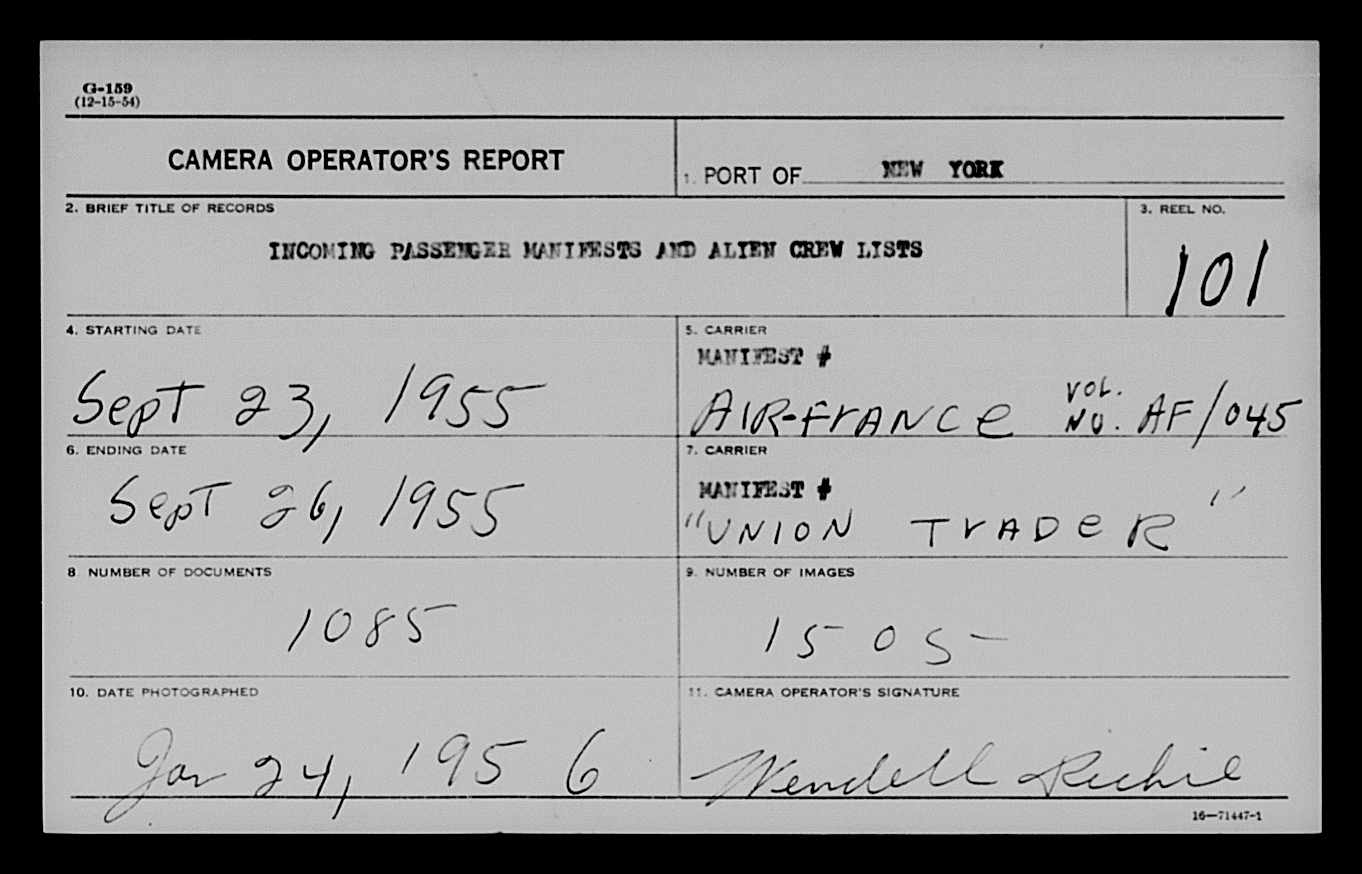 G-159
(12-15-54)
CAMERA OPERATOR'S REPORT
1. PORT OF NEW YORK
2. BRIEF TITLE OF RECORDS
INCOMING PASSENGER MANIFESTS AND ALIEN CREW LISTS
3. REEL NO.
101
4. STARTING DATE
Sept 23, 1955
5. CARRIER
MANIFEST #
AIR-FrANCe VOL. NO. AF/045
6. ENDING DATE
Sept 26, 1955
7. CARRIER
MANIFEST #
"UNION TrADeR"
8 NUMBER OF DOCUMENTS
1085
9. NUMBER OF IMAGES
1505
10. DATE PHOTOGRAPHED
Jan 24, 1956
11. CAMERA OPERATOR'S SIGNATURE
Wendell
16—71447-1